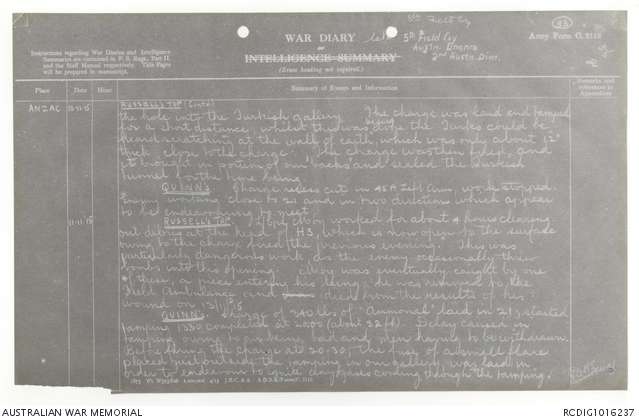 8th Field Coy
43
WAR DIARY
or
INTELLIGENCE SUMMARY
(Erase heading not required.)
5th Field Coy
Austn. Engrs
2nd Austn. Divn.
Army Form C. 2118
Instructions regarding War Diaries and Intelligence
Summaries are contained in F. S. Regs., Part II.
and the Staff Manual respectively. Title Pages
will be prepared in manuscript.
Place
Date
Hour
Summary of Events and Information
Remarks and
references to
Appendices
ANZAC
RUSSELL'S TOP (contd)
the hole into the Turkish gallery. The charge was laid and tamped
for a short distance, whilst this was done the Turks could be
heard scratching at the wall of earth, which was only about 12"
thick, close to the charge. The charge was then fired, and
it brought in portion of "Turks" and sealed the Turkish
tunnel for the time being.
QUINN'S Charge recess cut in left arm, work stopped.
Enemy working close to 21 and in two directions which appear
to be endeavouring to meet.
11-11-15
RUSSELL'S TOP worked for about 4 hours clearing
out debris at the head of H3, which is now open to the surface
owing to the charge fired the previous evening. This was
particularly dangerous work, as the enemy occasionally threw
bombs into this opening. was eventually caught by one
of these, a piece entering his lung. He was removed to the
Field Ambulance and died from the results of his
wound on
QUINN'S Charge of 340 lbs of "Ammonal" laid in 21, started
tamping 1330 completed at 2000 (about 22 ft). Delay caused in
tamping owing to air being bad and men having to be withdrawn.
Before firing the charge at 20.30, the fuse of a small flare
placed just outside the tamping in our gallery was laid in
order to endeavour to ignite any gases coming through the tamping.
AUSTRALIAN WAR MEMORIAL
RCDIG1016237